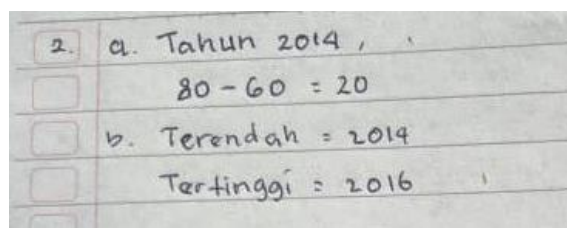 2. a. Tahun 2014,
80 - 60 = 20
b. Terendah = 2014
Tertinggi = 2016